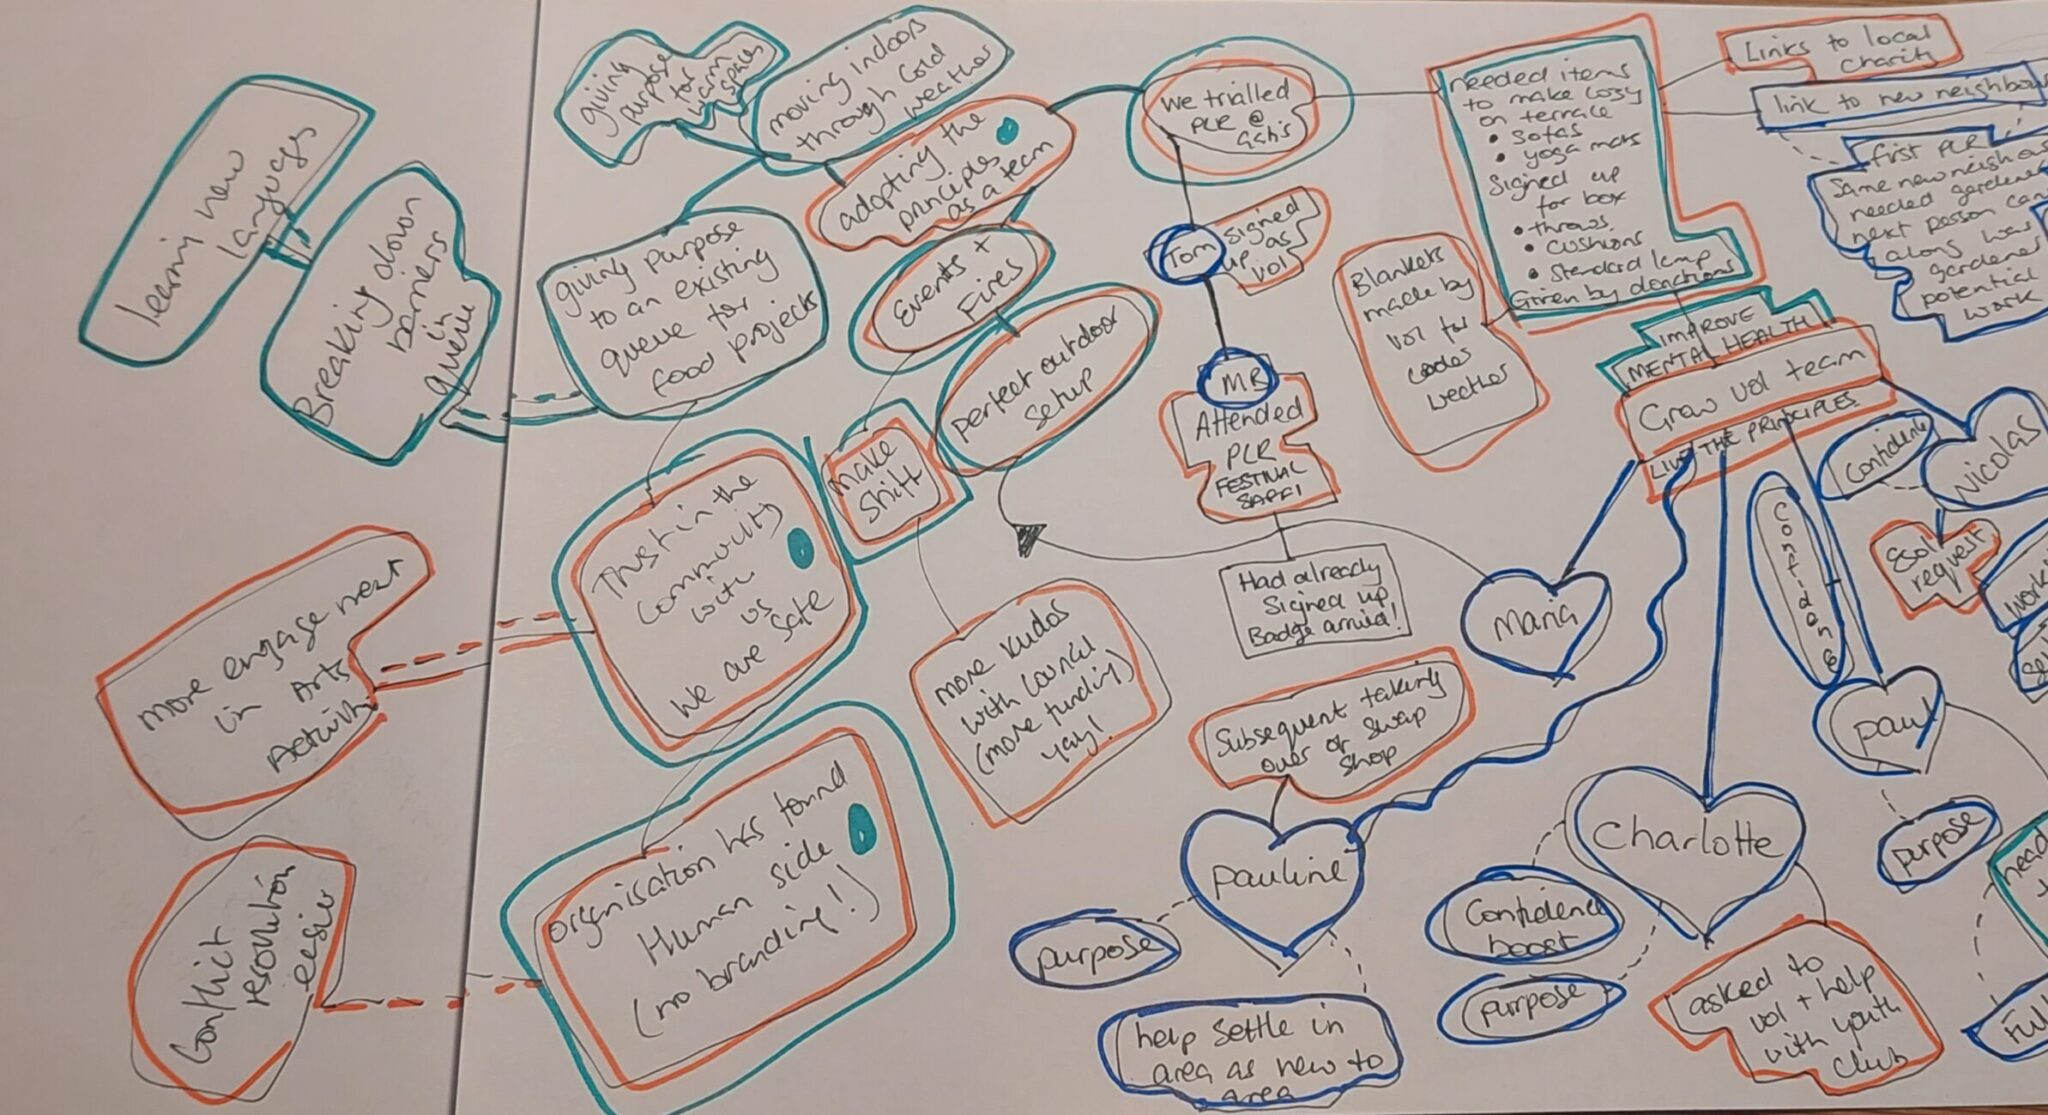 Learning new
languages
Breaking down
barriers
in
queue
More engagement
in Arts
Activity
Conflict
resolution
easier
giving
purpose
for
warm
spaces
moving indoors
through cold
weather
adopting the
principles
as a team
giving purpose
to an existing
queue for
food projects
Events +
Fires
perfect outdoor
setup
make
shift
Trust in the
community
with
us
We are safe
organisation has found
Human side
(no branding!)
more kudos
with council
(more funding)
yay!
we trialled
PLR @
Tom
signed
up as
vol
MR
Attended
PLR
FESTIVAL
Had already
Signed up
Badge arrived!
needed items
to make cosy
on terrace
• sofas
• yoga mats
Signed up
for box
• throws
• cushions
• Standard lamp
Given by donations
Blankets
made by
vol for
weather
Links to local
charity
link to new neighbou
first PLR
Same new neigh
needed gardene
next person
along was
gardener
potential
work
IMPROVE
MENTAL HEALTH
Grow vol team
LIVE THE PRINCIPLES
Confidence
Nicolas
Esol
request
Maria
Confidence
Paul
purpose
Subsequent taking
over of swap
shop
Pauline
purpose
help settle in
area as new to
area
Charlotte
Confidence
boost
purpose
asked to
vol + help
with youth
club